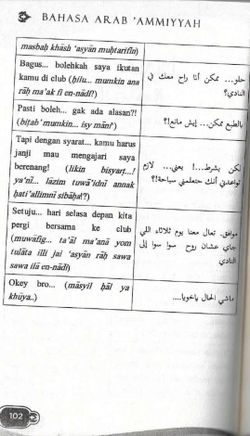 BAHASA ARAB 'AMMIYYAH
masbaḥ khāsh 'asyān muḥtarifīn)
Bagus... bolehkah saya ikutan
kamu di club (ḥilu... mumkin ana
rāḥ ma'ak fi en-nādī?)
حلو... ممكن أنا راح معك في
النادي؟
Pasti boleh... gak ada alasan?!
(biṭab'mumkin... isy māni')
بالطبع ممكن... إيش مانع؟!
Tapi dengan syarat... kamu harus
janji mau mengajari saya
berenang! (likin bisyarṭ...!
ya'nī... lāzim tuwā'idnī annak
ḥati'allimnī sibāḥa!?)
لكن بشرط...! يعني... لازم
تواعدني أنك حتعلمني سباحة!؟
Setuju... hari selasa depan kita
pergi bersama ke club
(muwāfig... ta'āl ma'anā yom
tulāta illi jai 'asyān rāḥ sawa
sawa ilā en-nādī)
موافق. تعال معنا يوم ثلاثاء اللي
جاي عشان روح سوا سوا إلى
النادي
Okey bro... (māsyil ḥāl ya
khūya..)
ماشي الحال ياخويا....
102